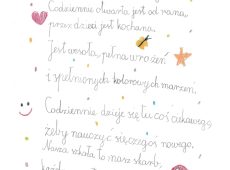 Codziennie otwarta jest od rana,
i przez dzieci jest kochana.
Jest wesoła, pełna wrażeń
i spełnionych kolorowych marzeń.
Codziennie dzieje się tu coś ciekawego,
żeby nauczyć się czegoś nowego.
Nasza szkoła to nasz skarb,